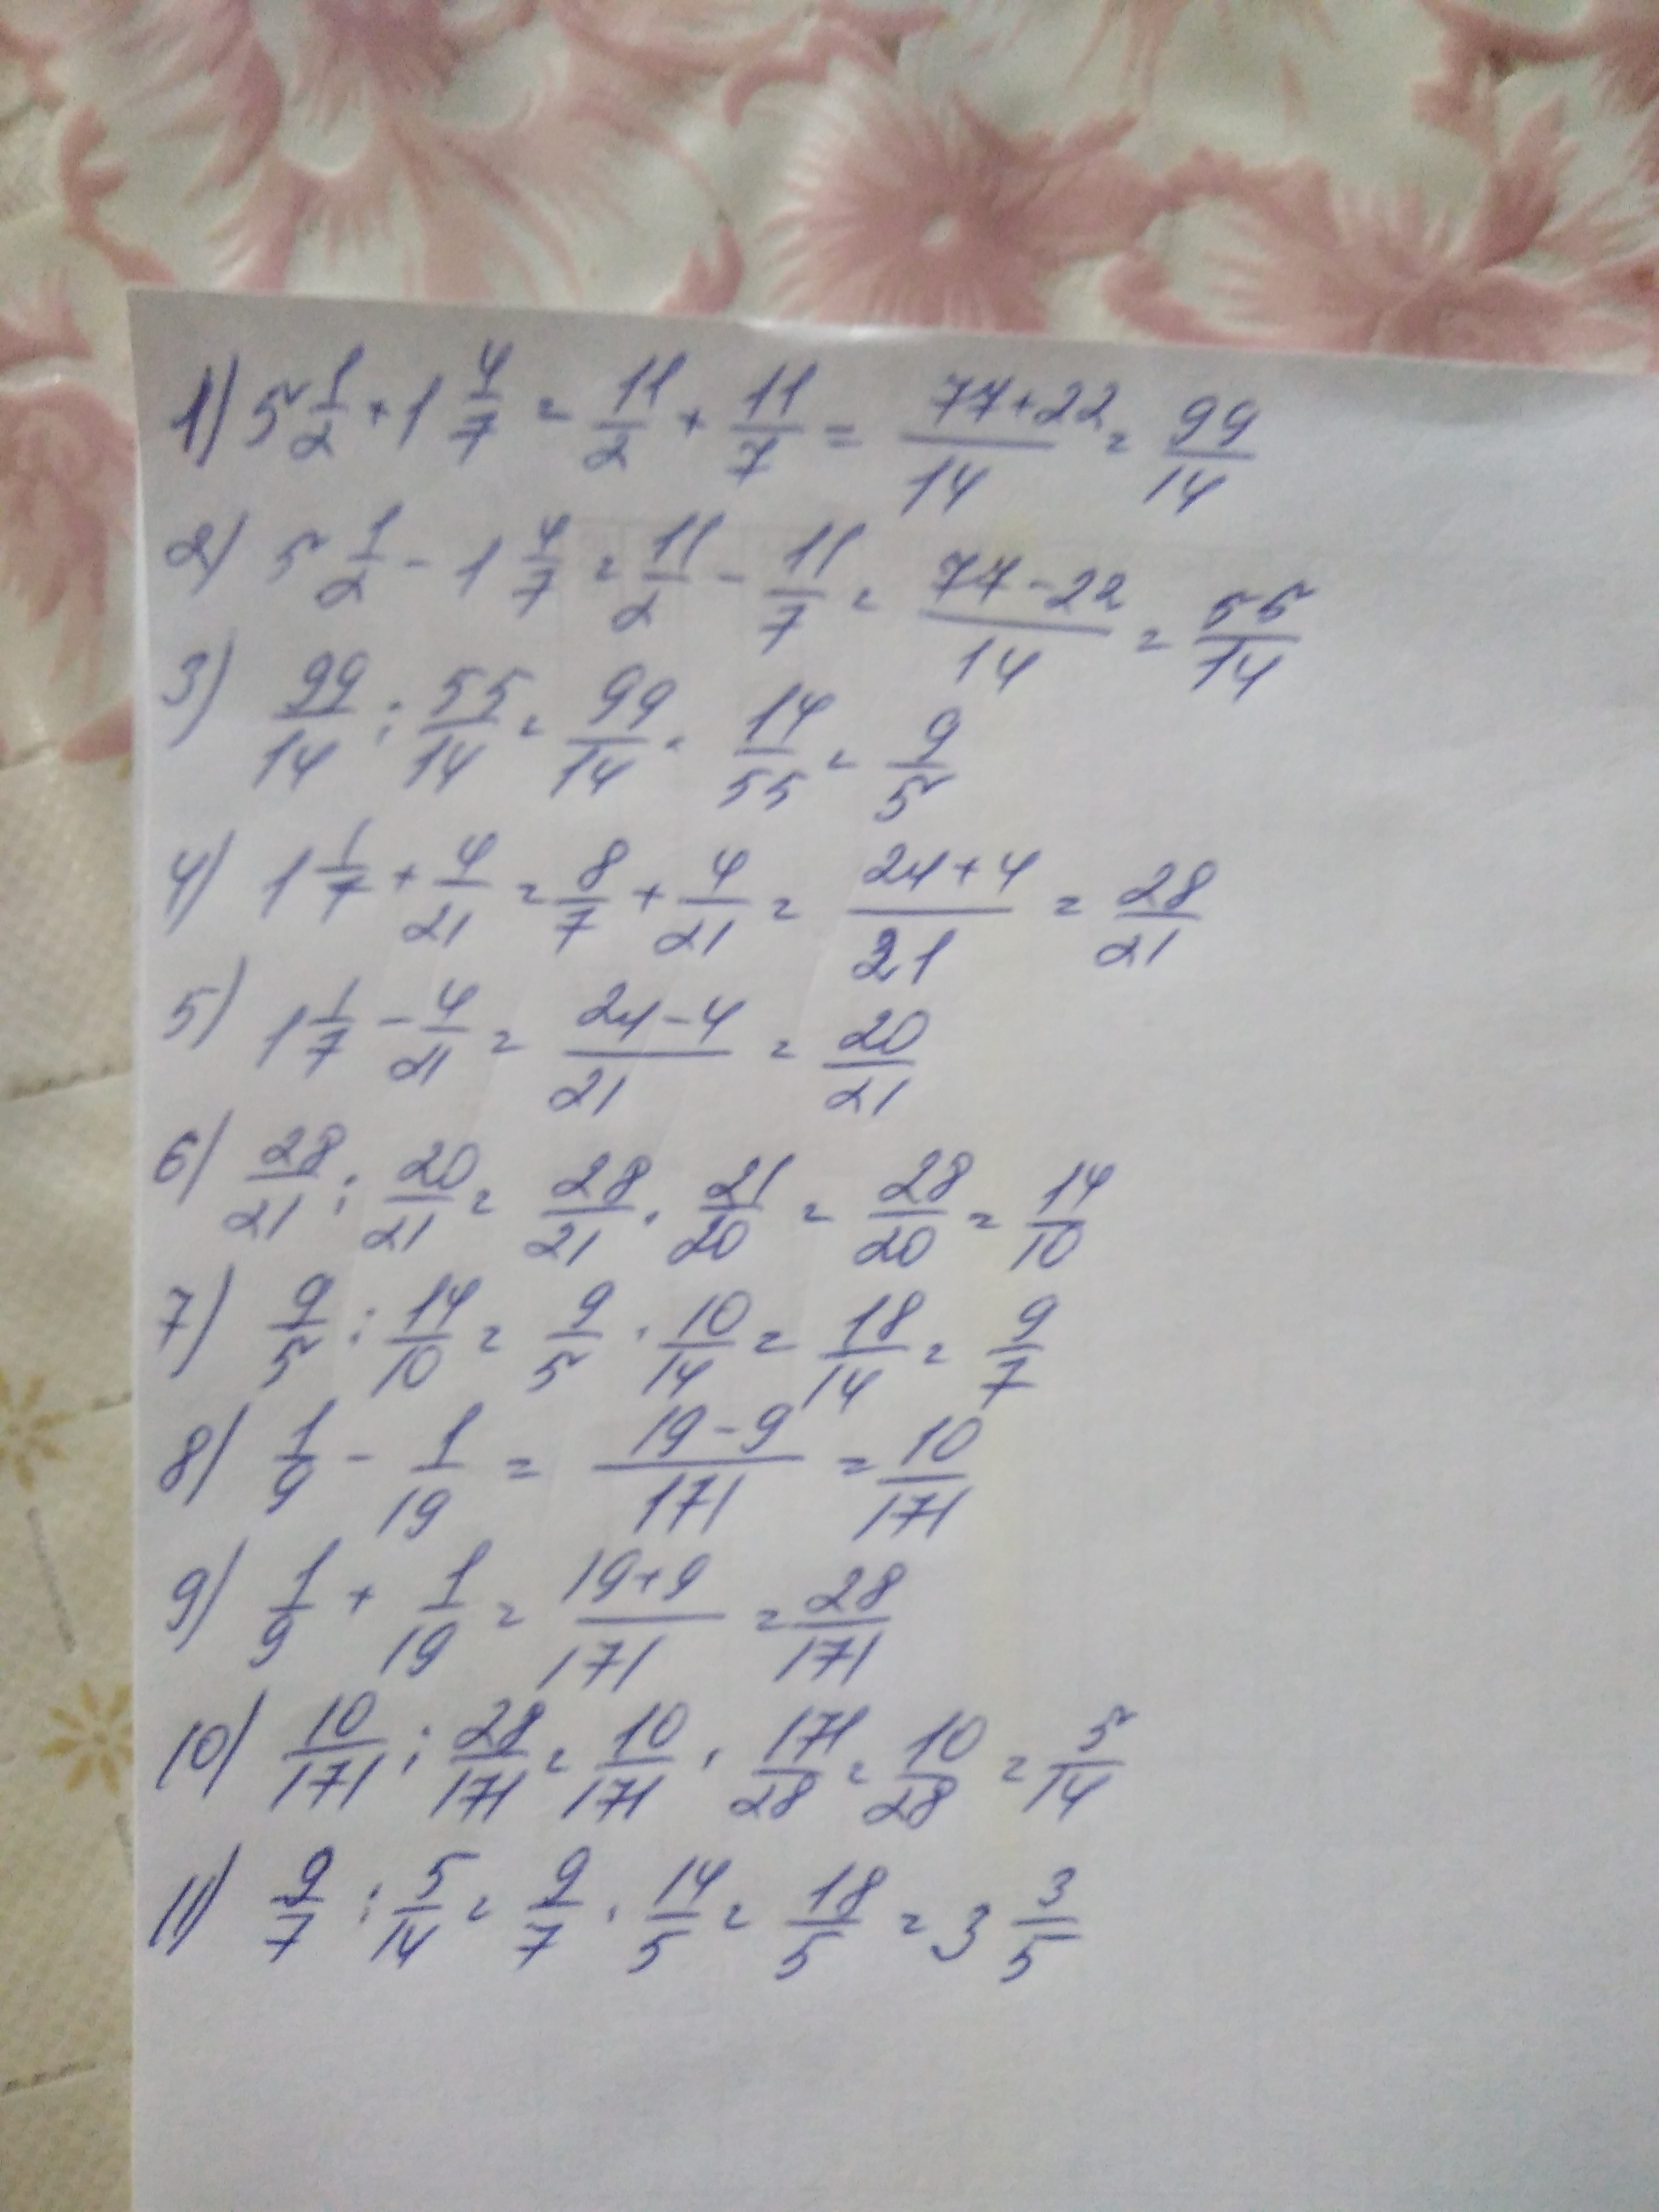 1) 5 1/2 + 1 4/7 = 11/2 + 11/7 = (77+22)/14 = 99/14
2) 5 1/2 - 1 4/7 = 11/2 - 11/7 = (77-22)/14 = 55/14
3) 99/14 : 55/14 = 99/14 · 14/55 = 9/5
4) 1 1/7 + 4/21 = 8/7 + 4/21 = (24+4)/21 = 28/21
5) 1 1/7 - 4/21 = (24-4)/21 = 20/21
6) 28/21 : 20/21 = 28/21 · 21/20 = 28/20 = 14/10
7) 9/5 : 14/10 = 9/5 · 10/14 = 18/14 = 9/7
8) 1/9 - 1/19 = (19-9)/171 = 10/171
9) 1/9 + 1/19 = (19+9)/171 = 28/171
10) 10/171 : 28/171 = 10/171 · 171/28 = 10/28 = 5/14
11) 9/7 : 5/14 = 9/7 · 14/5 = 18/5 = 3 3/5